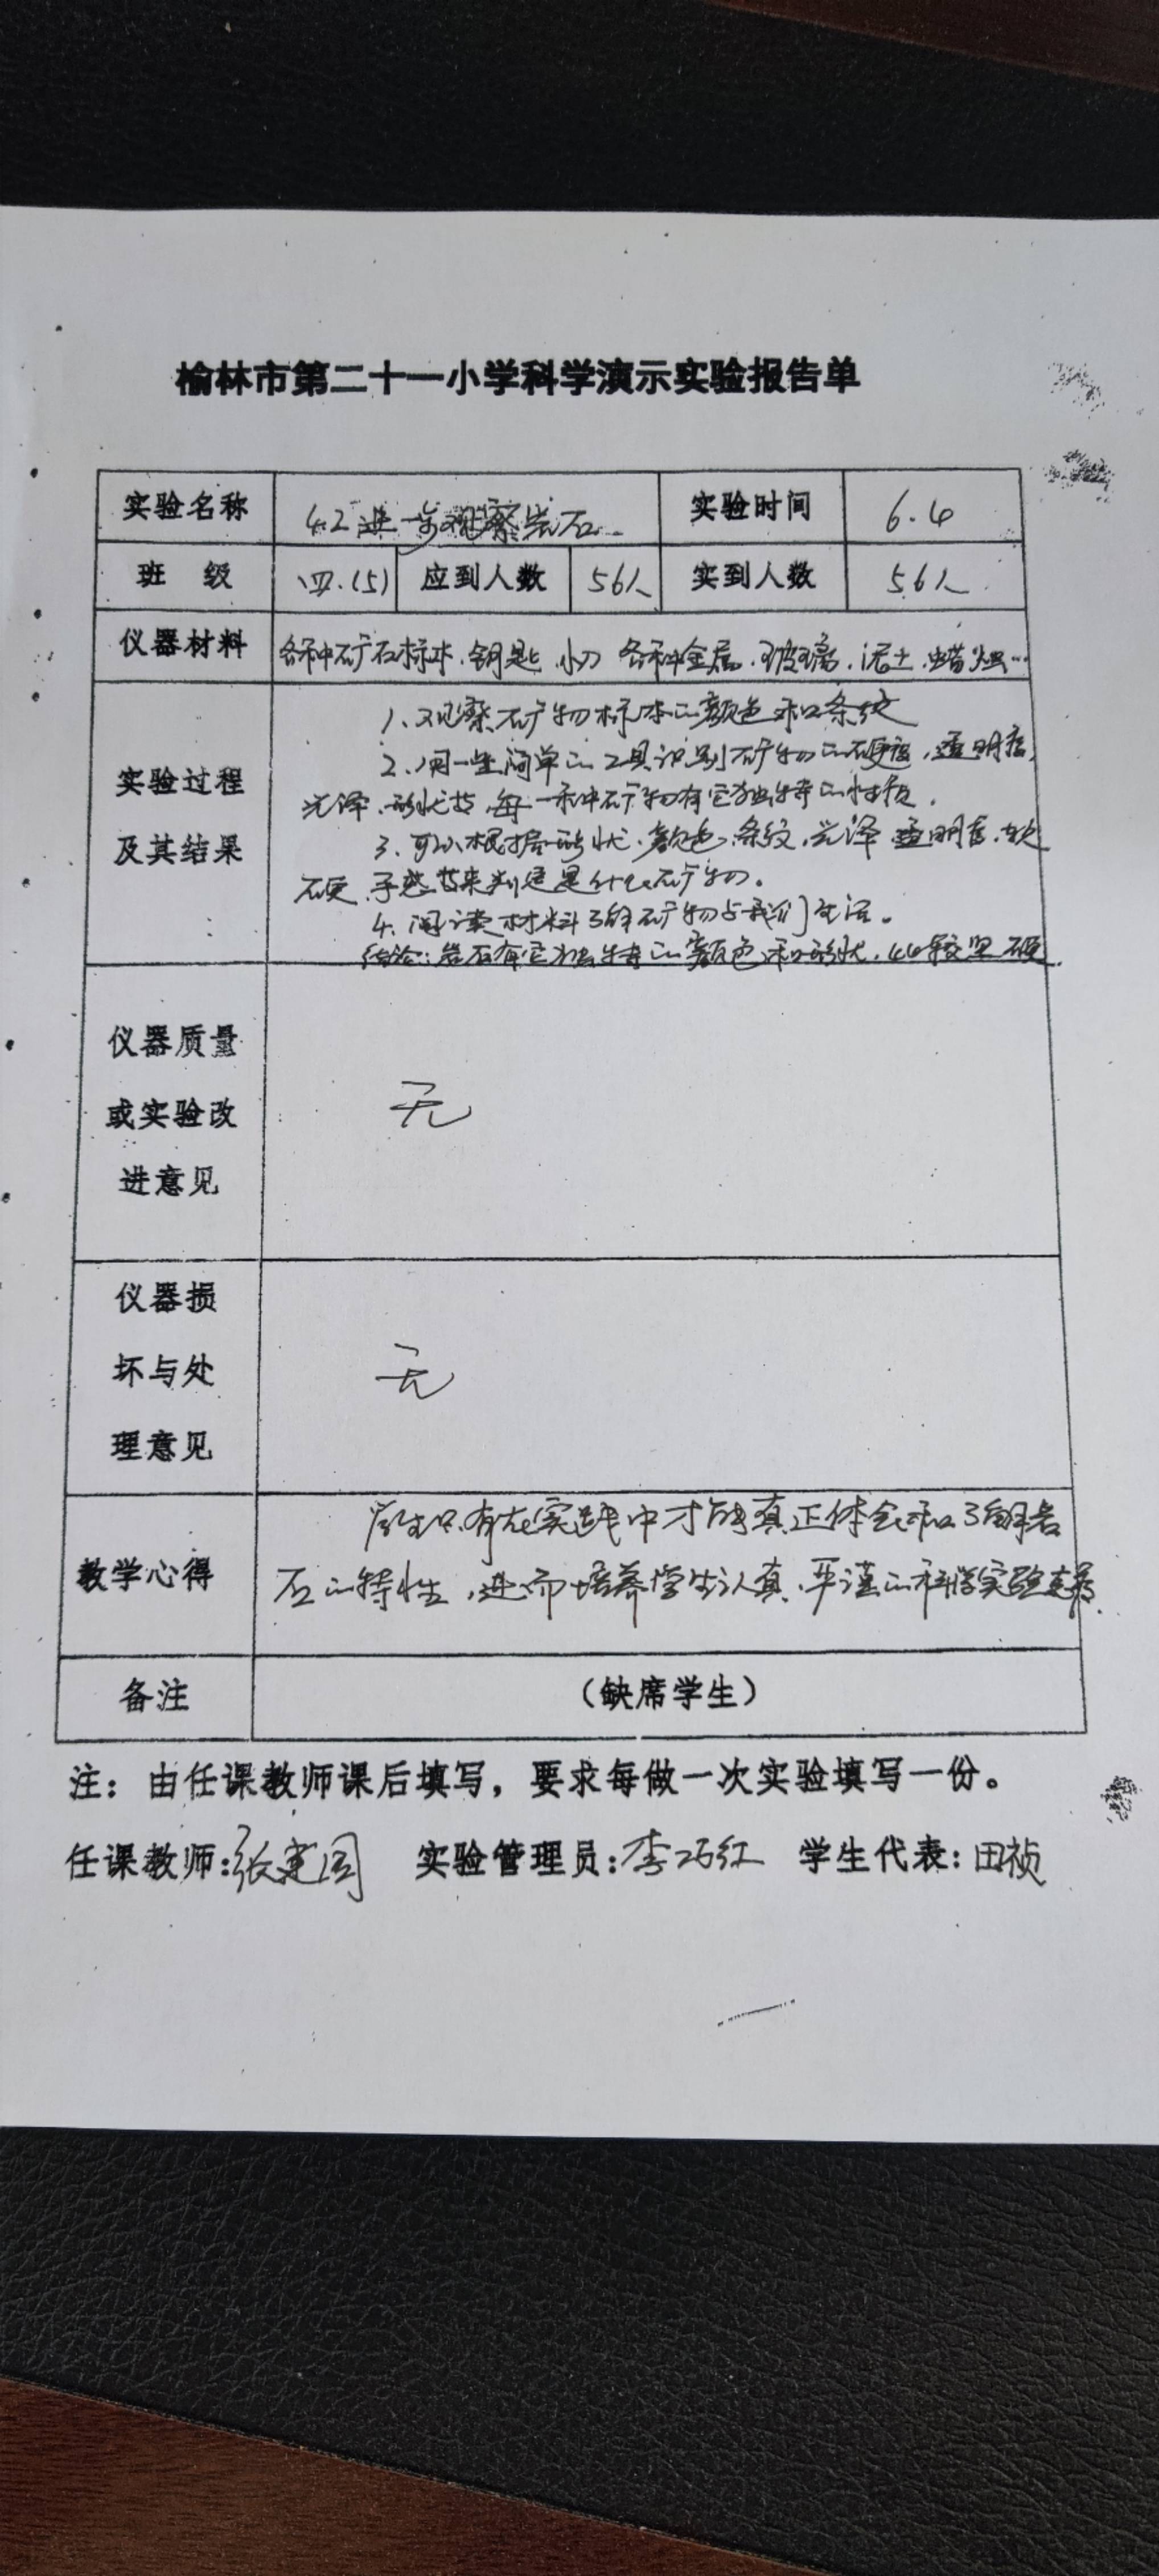 榆林市第二十一小学科学演示实验报告单
实验名称 4.2进一步观察岩石 实验时间 6.4
班 级 四.(5) 应到人数 56人 实到人数 56人
仪器材料 各种矿石标本.钥匙.小刀 各种金属.玻璃.泥土.蜡烛…
实验过程
及其结果
1、观察矿物标本的颜色和条纹
2、用一些简单的工具识别矿物的硬度,透明度,
光泽、形状等,每一种矿物有它独特的性质.
3、可以根据形状、颜色、条纹、光泽 透明度、软
硬、手感等来判定是什么矿物。
4、阅读材料了解矿物与我们生活。
结论:岩石有它独特的颜色和形状,比较坚硬.
仪器质量
或实验改
进意见
无
仪器损
坏与处
理意见
无
教学心得
学生只有在实践中才能真正体会和了解岩
石的特性,进而培养学生认真、严谨的科学实验
备注 (缺席学生)
注: 由任课教师课后填写, 要求每做一次实验填写一份。
任课教师:张建国 实验管理员:李巧红 学生代表:田祯